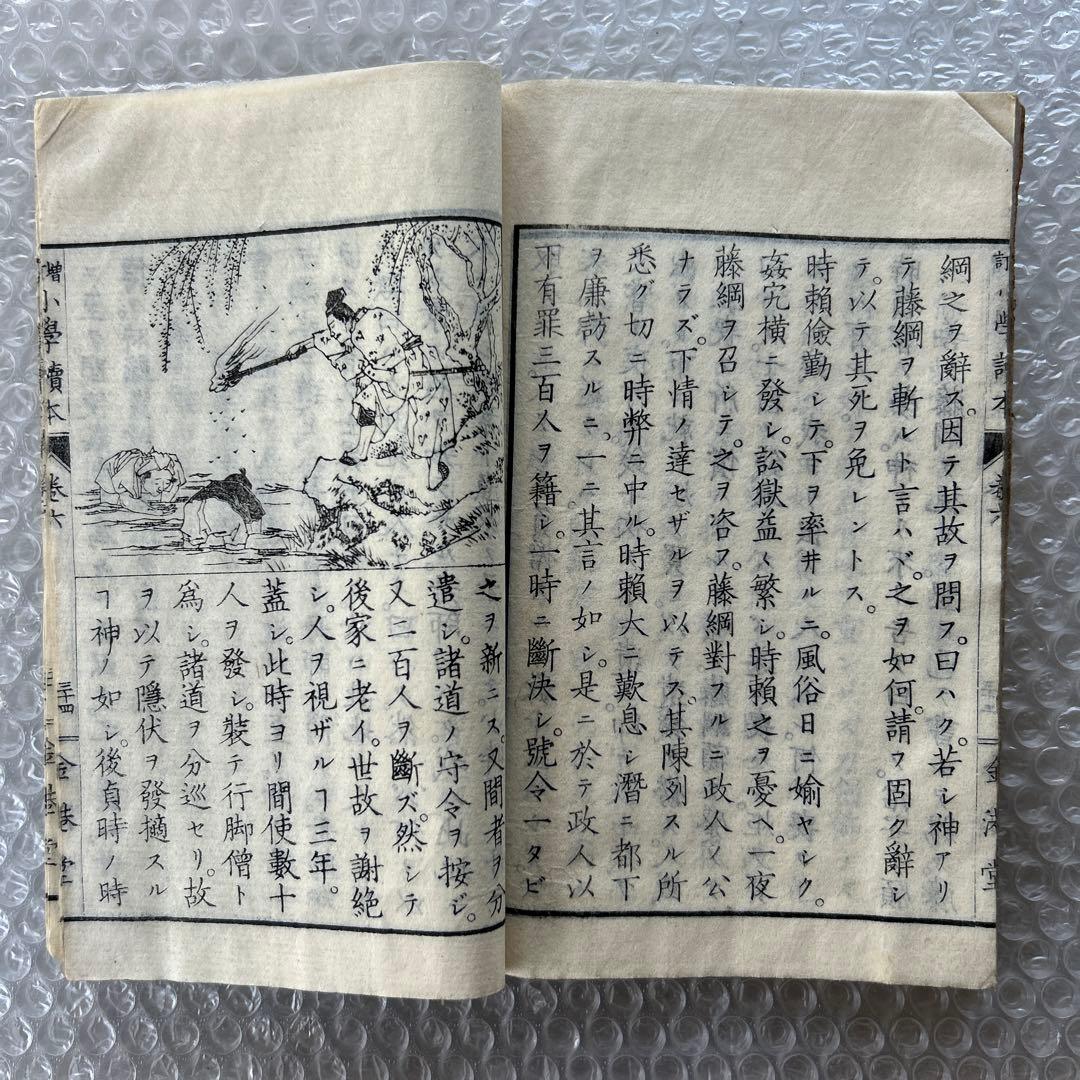 綱之ヲ辭ス。因テ其故ヲ問フ。曰ハク。若シ神アリ
テ藤綱ヲ斬レト言ハバ。之ヲ如何。請フ固ク辭シ
テ。以テ其死ヲ免レントス。
時賴儉勤シテ。下ヲ率井ルニ。風俗日ニ媮ヤシク。
姦宄橫ニ發シ。訟獄益〻繁シ。時賴之ヲ憂ヘ。一夜
藤綱ヲ召シテ。之ヲ咨フ。藤綱對フルニ政人ノ公
ナラズ。下情ノ達セザルヲ以テス。其陳列スル所
悉グ切ニ時弊ニ中ル。時賴大ニ歎息シ潛ニ都下
ヲ廉訪スルニ。一ニ其言ノ如シ。是ニ於テ政人以
下有罪三百人ヲ籍シ。一時ニ斷決シ。號令一タビ
之ヲ新ニス。又間者ヲ分
遣シ。諸道ノ守令ヲ按ジ。
又二百人ヲ斷ズ。然シテ
後家ニ老イ。世故ヲ謝絶
シ。人ヲ視ザルヿ三年。
蓋シ。此時ヨリ間使數十
人ヲ發シ。裝テ行脚僧ト
爲シ。諸道ヲ分巡セリ。故
ヲ以テ隱伏ヲ發擿スル
ヿ神ノ如シ。後貞時ノ時
增
小學讀本
卷六
三十四
金港堂